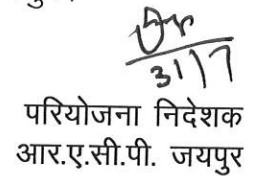 31/7
परियोजना निदेशक
आर.ए.सी.पी. जयपुर